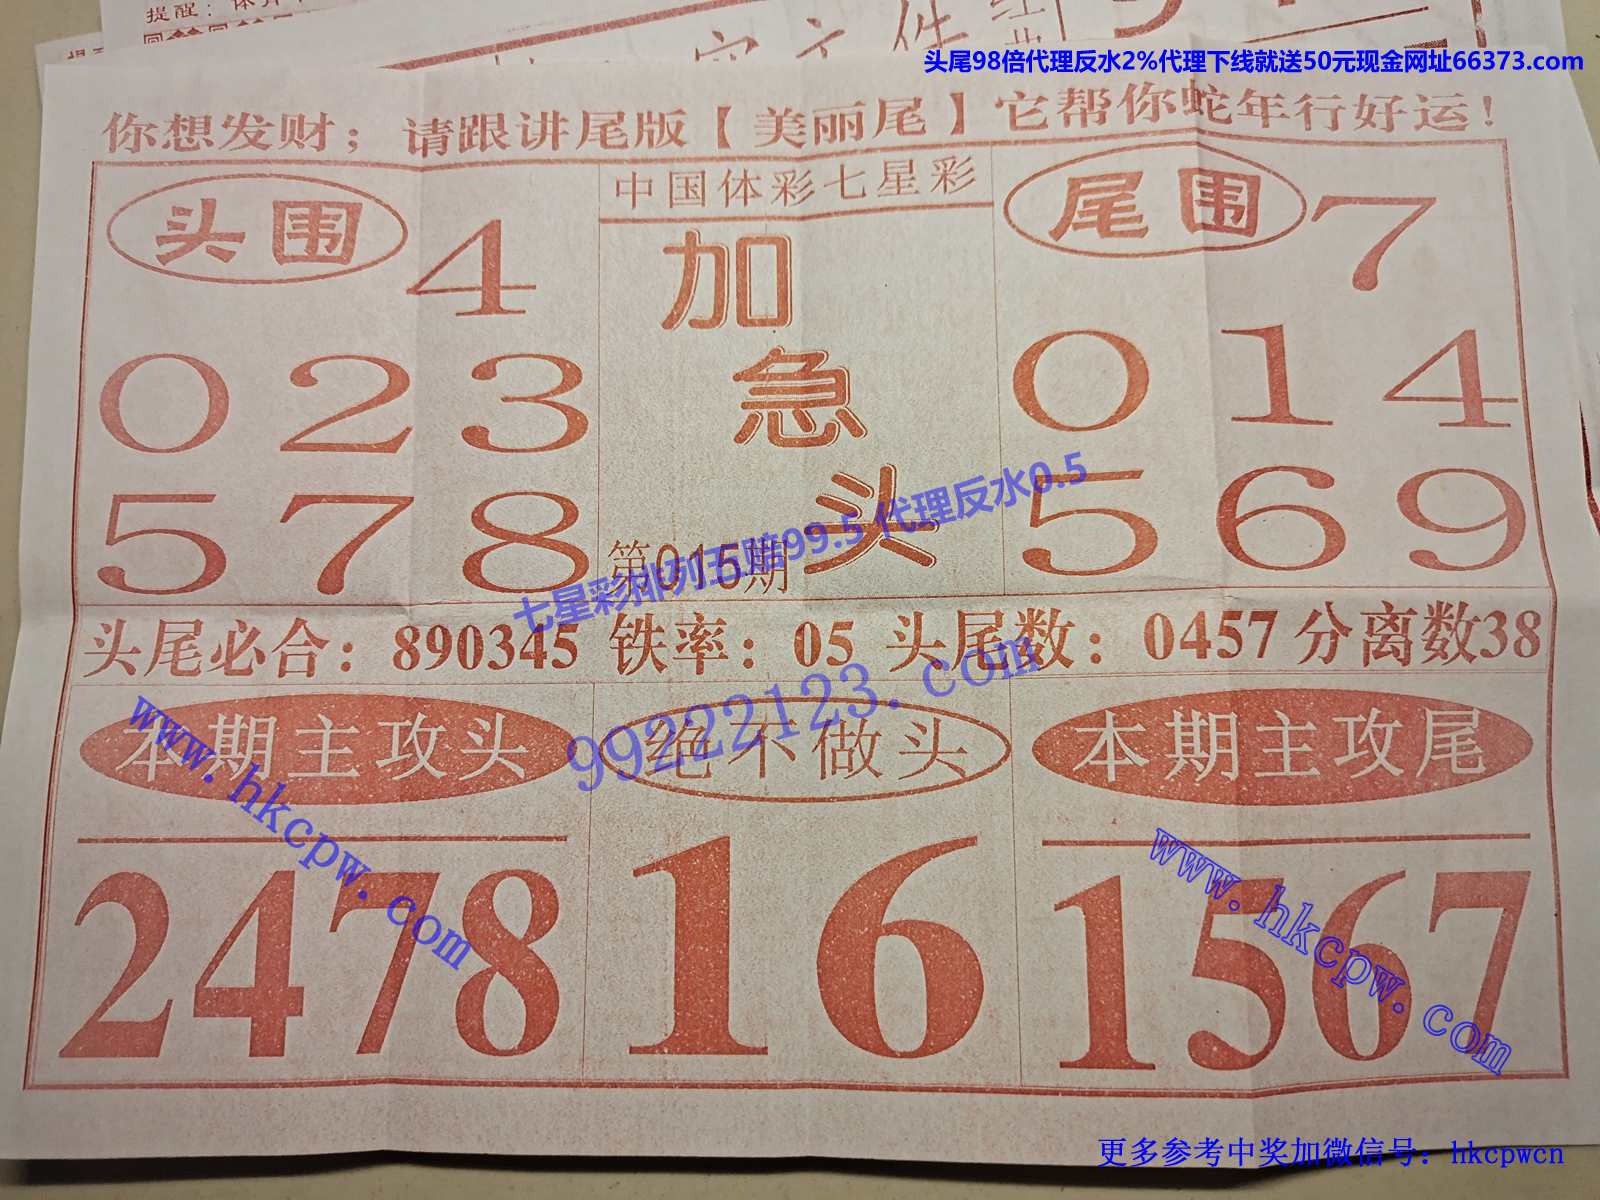 提醒：
头尾98倍代理反水2%代理下线就送50元现金网址66373.com
你想发财；请跟讲尾版【美丽尾】它帮你蛇年行好运！
头围
4
0 2 3
5 7 8
中国体彩七星彩
加
急
头
第015期
尾围
7
0 1 4
5 6 9
七星彩排列五赔99.5 代理反水0.5
头尾必合：890345 铁率：05 头尾数：0457 分离数38
99222123.com
本期主攻头
绝不做头
本期主攻尾
2478
16
1567
www.hkcpw.com
www.hkcpw.com
更多参考中奖加微信号：hkcpwcn